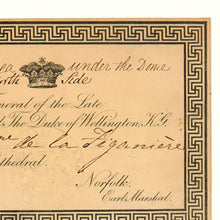 under the Dome
North Side
neral of the Late
The Duke of Wellington, K.G.
de la Figanière
thedral.
Norfolk,
Earl Marshal.